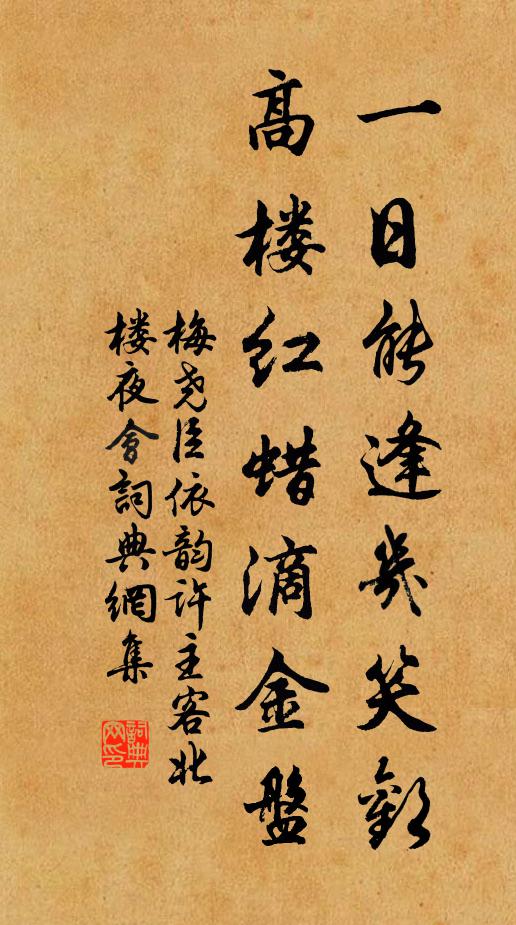 一日能逢幾笑歡
高楼红蜡滴金盤
梅尧臣依韵许主客北
楼夜會詞典網集
詞典
网印